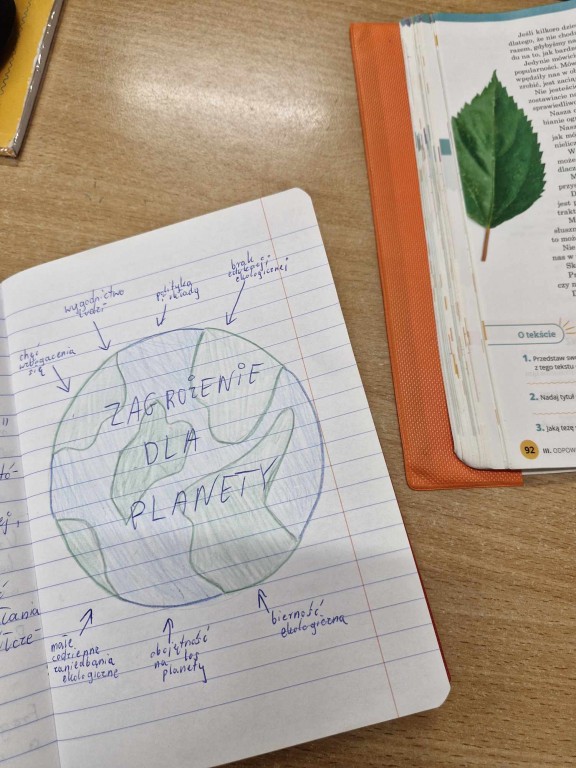 chęć
wzbogacenia
się
wygodnictwo
ludzi
polityka
brak
edukacji
ekologicznej
ZAGROŻENIE
DLA
PLANETY
małe
codzienne
zaniedbania
ekologiczne
obojętność
na los
planety
bierność
ekologiczna
Jeśli kilkoro dzie
dlatego, że nie chodz
razem, gdybyśmy na
du na to, jak bardz
Jedynie mówici
popularności. Mów
wpędziły nas w ob
zrobić, jest zacią
Nie jesteście
zostawiacie na
sprawiedliwe
Nasza c
bianie og
Nasz
jak mó
nielicz
W
może
dlacz
M
przy
D
jest p
trakt
M
słuszn
to moż
Nie
nas w
Sk
Pr
czy n
O tekście
1. Przedstaw sw
z tego tekstu
2. Nadaj tytuł
3. Jaką tezę
92 III. ODPOW